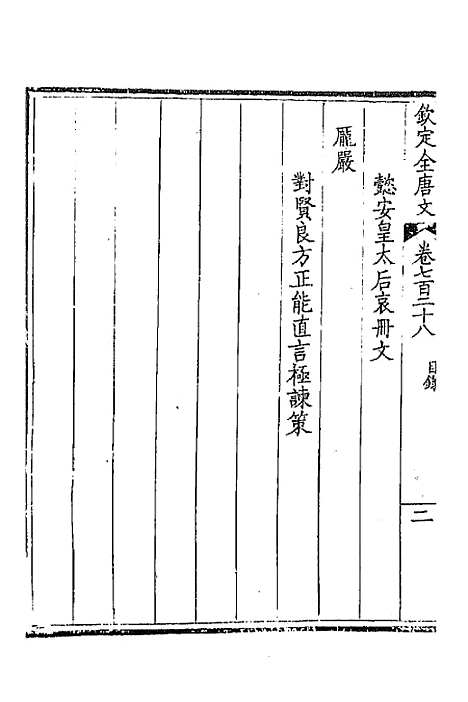 欽定全唐文 卷七百二十八 目錄 二
懿安皇太后哀冊文
龐嚴
對賢良方正能直言極諫策